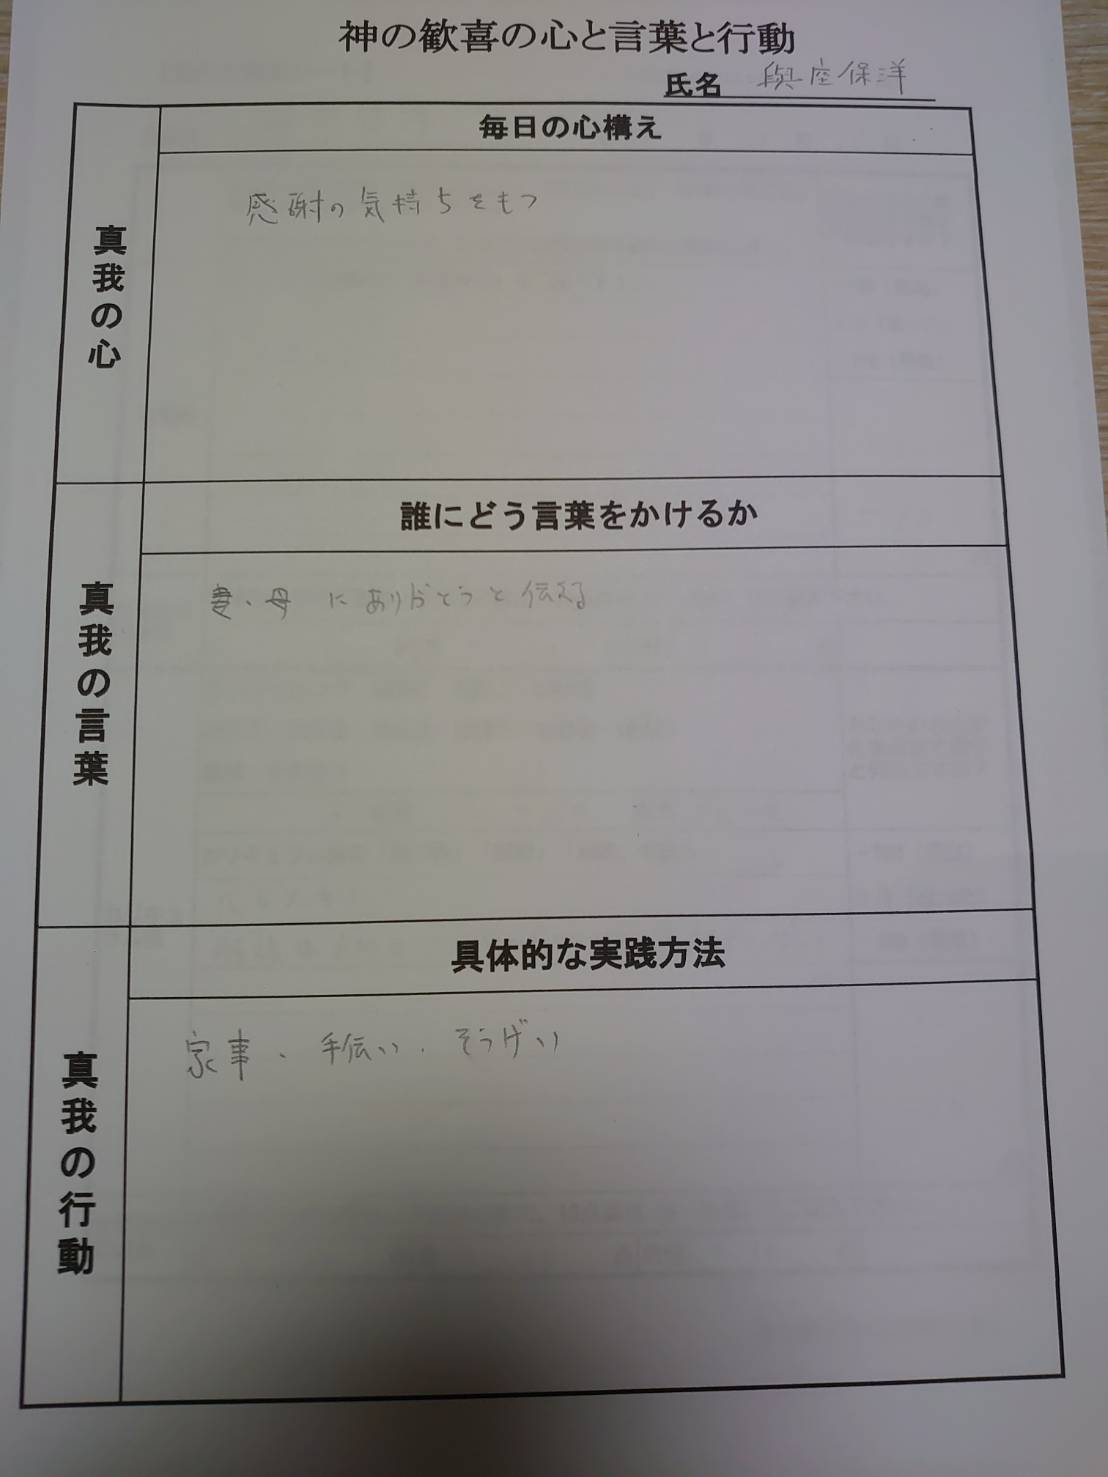 神の歓喜の心と言葉と行動
氏名 與座保洋
毎日の心構え
真我の心
感謝の気持ちをもつ
誰にどう言葉をかけるか
真我の言葉
妻、母 にありがとうと伝える
具体的な実践方法
真我の行動
家事、手伝い、そうげい